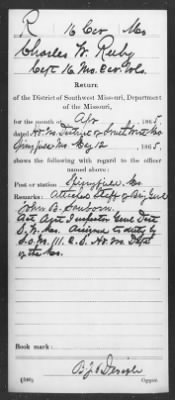 R 16 Cav Mo
Charles W. Ruby
Capt 16 Mo. Cav. Vols.
RETURN
of the District of Southwest Missouri, Department
of the Missouri,
for the month of Apr, 1865.
dated Hd Qrs District of South West Mo
Springfield Mo May 12, 1865,
shows the following with regard to the officer
named above:
Post or station Springfield Mo
Remarks: Attached Staff of Brig Genl
John B. Sanborn.
Act Asst Inspector Genl Dist
S.W. Mo. Assigned to duty by
S.O. No. 111. C.S. Hd Qrs Dept
of the Mo.
Book mark:
Copyist.